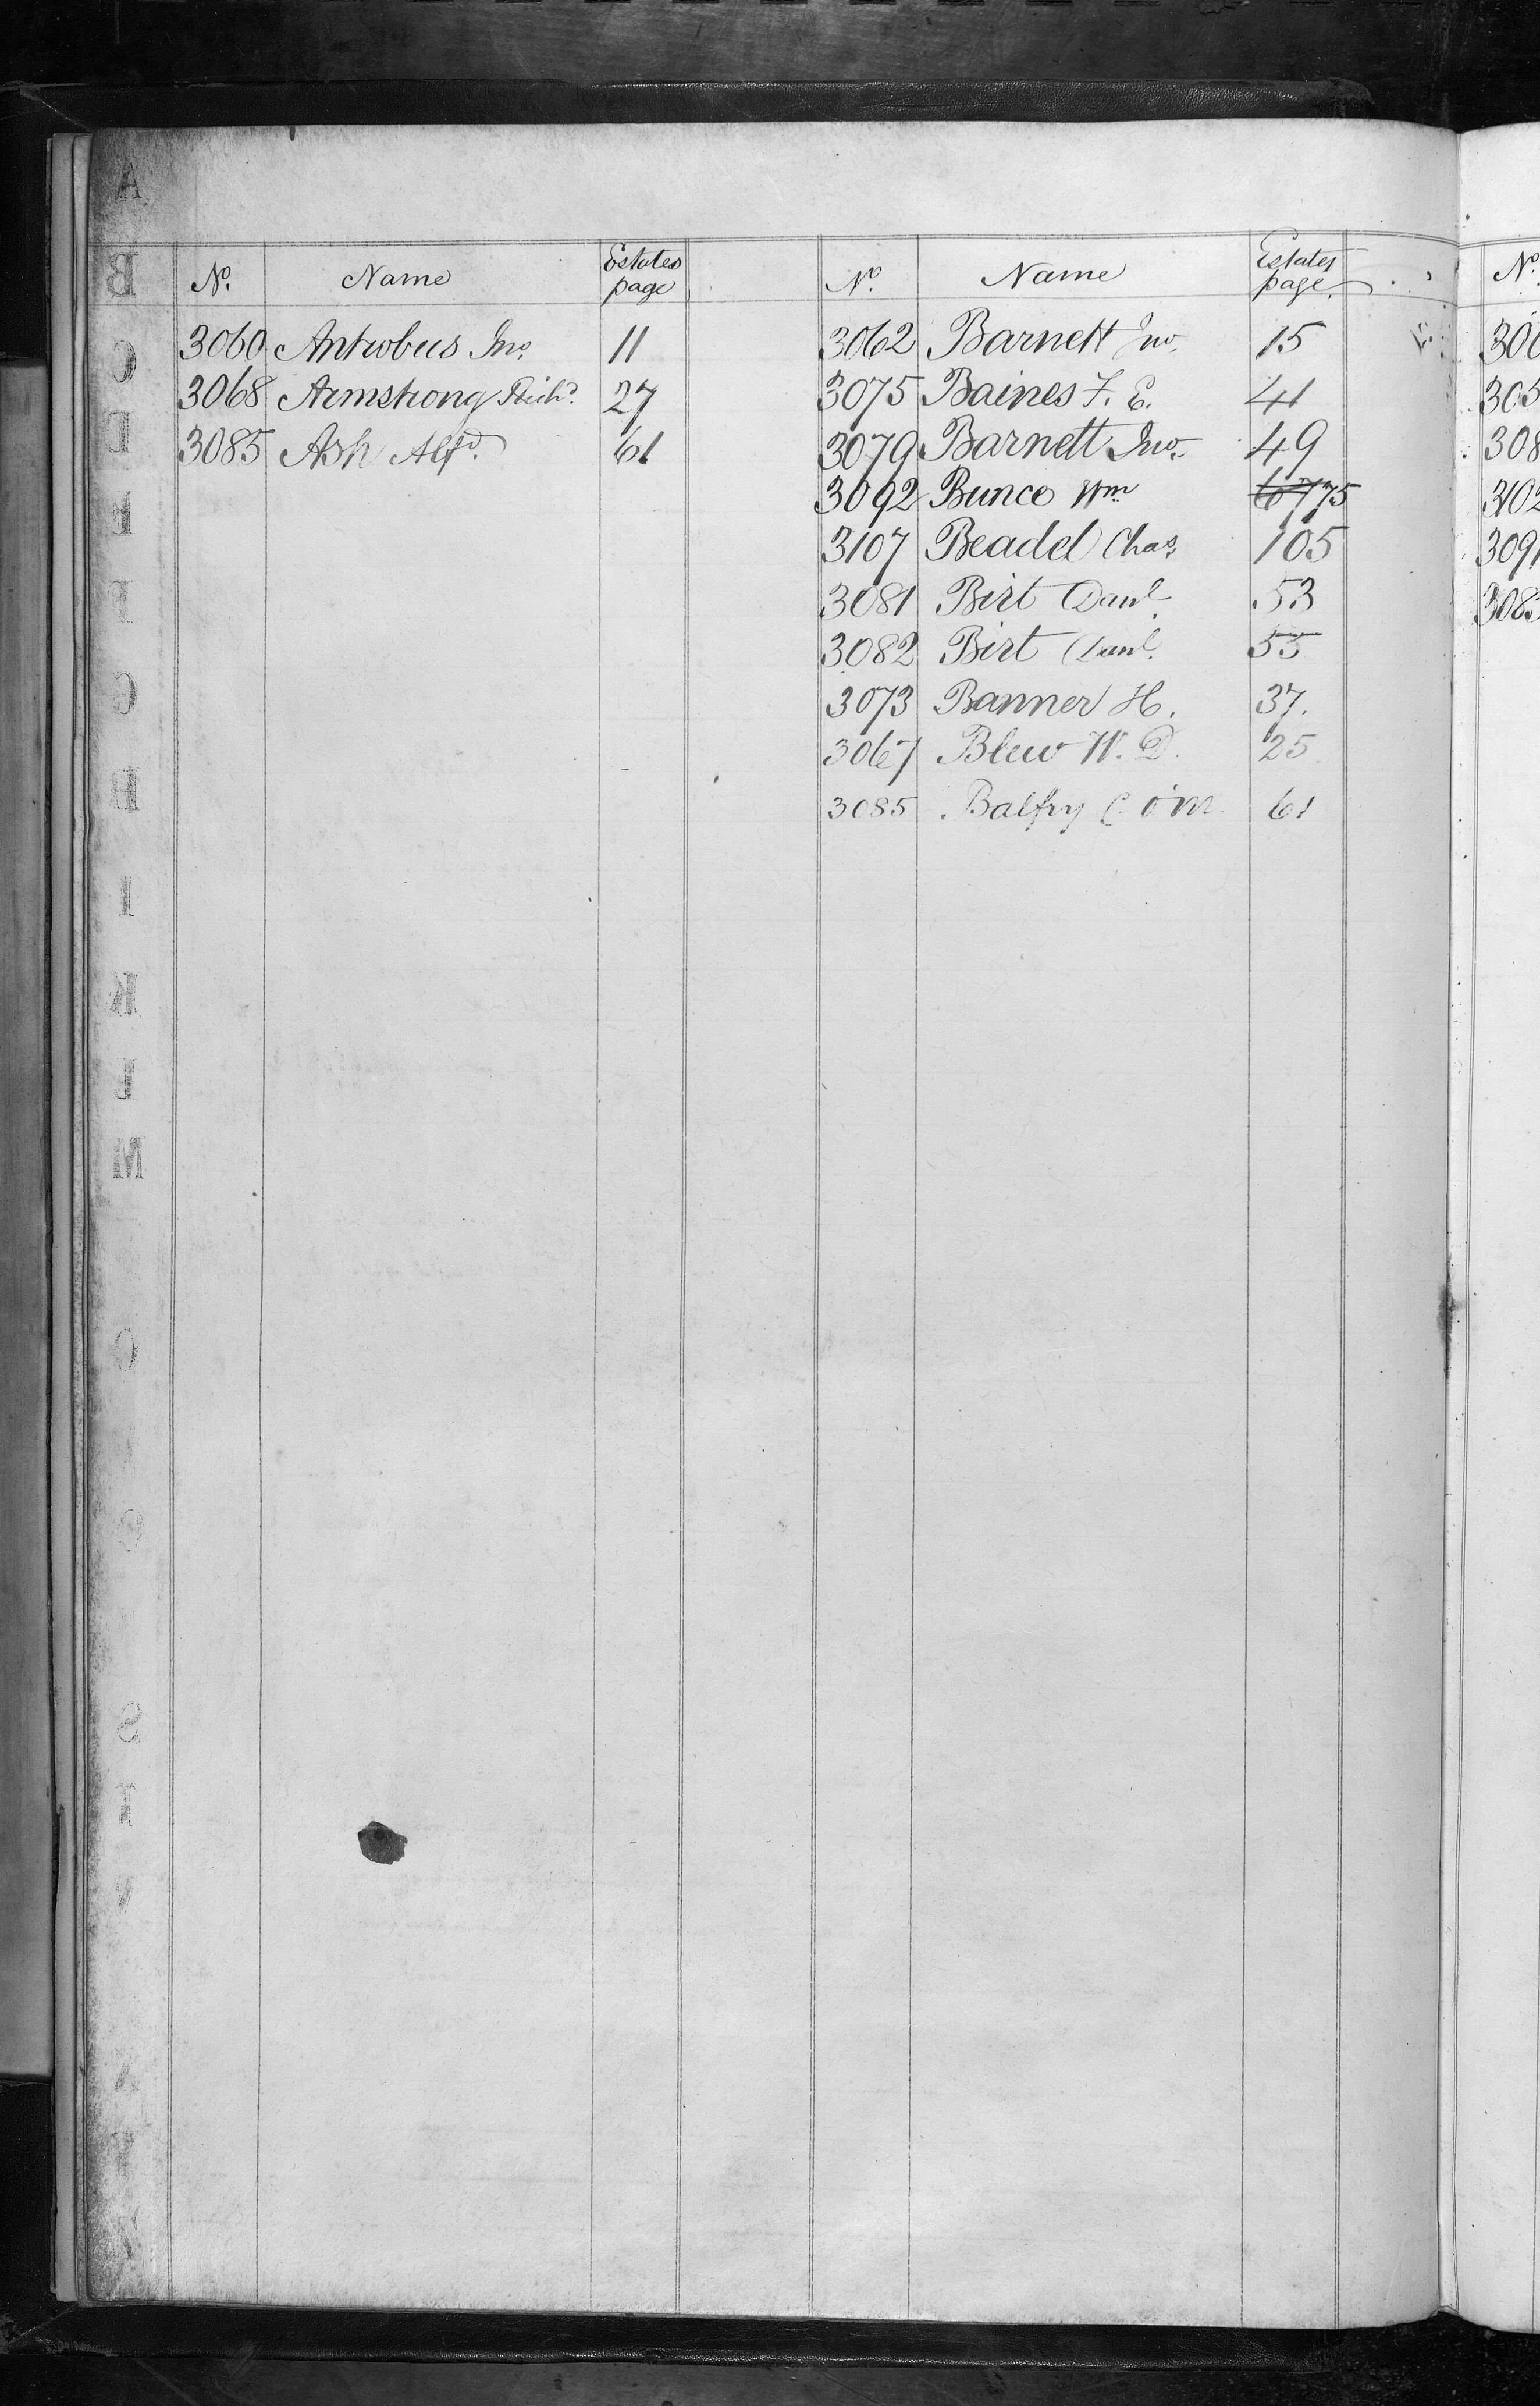 No. Name Estates page
3060 Antrobus Jno. 11
3068 Armstrong Richd. 27
3085 Ash Alfd. 61
No. Name Estates page.
3062 Barnett Jno. 15
3075 Baines F. E. 41
3079 Barnett Jno. 49
3092 Bunce Wm 67 75
3107 Beadel Chas. 105
3081 Birt Danl. 53
3082 Birt Danl. 55
3073 Banner H. 37.
3067 Blew W. D. 25
3085 61
No.